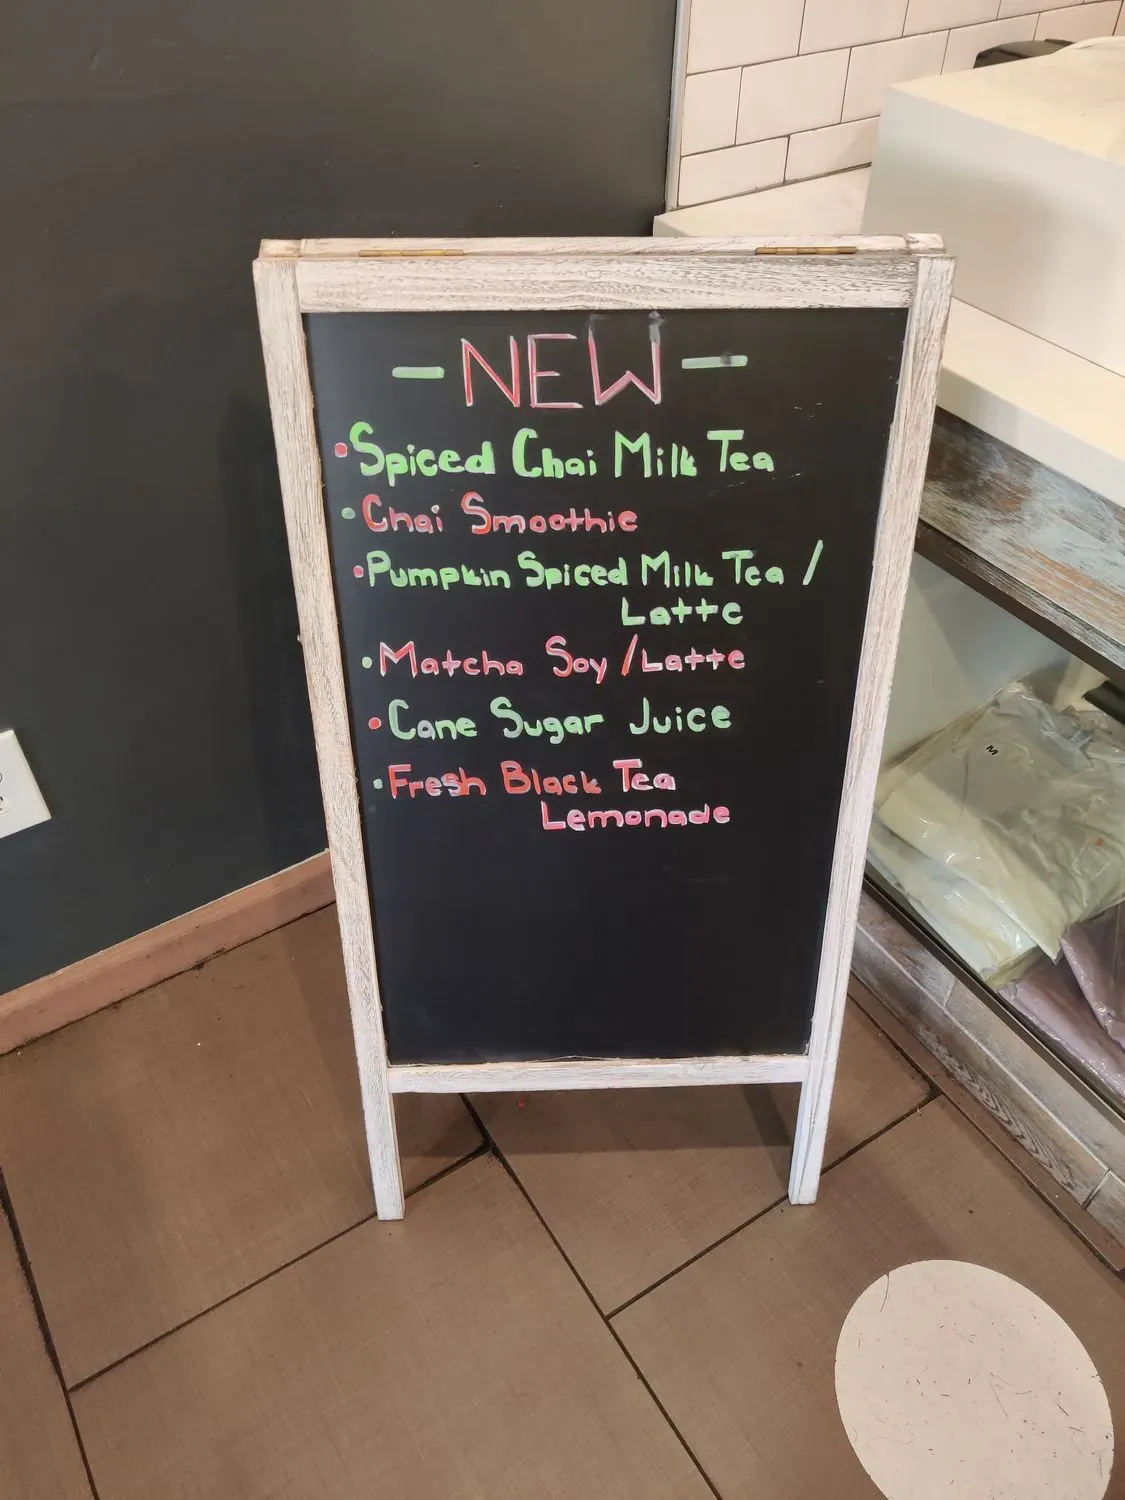 - NEW -
• Spiced Chai Milk Tea
• Chai Smoothie
• Pumpkin Spiced Milk Tea /
Latte
• Matcha Soy / Latte
• Cane Sugar Juice
• Fresh Black Tea
Lemonade
M